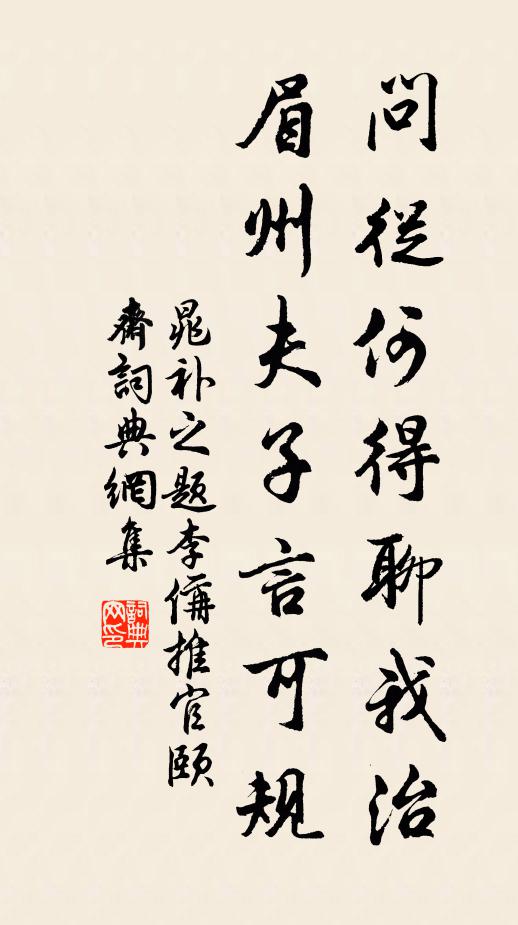 問從何得聊我治
眉州夫子言可規
晁補之題李偁推官頤
齋詞典網集
詞典网印